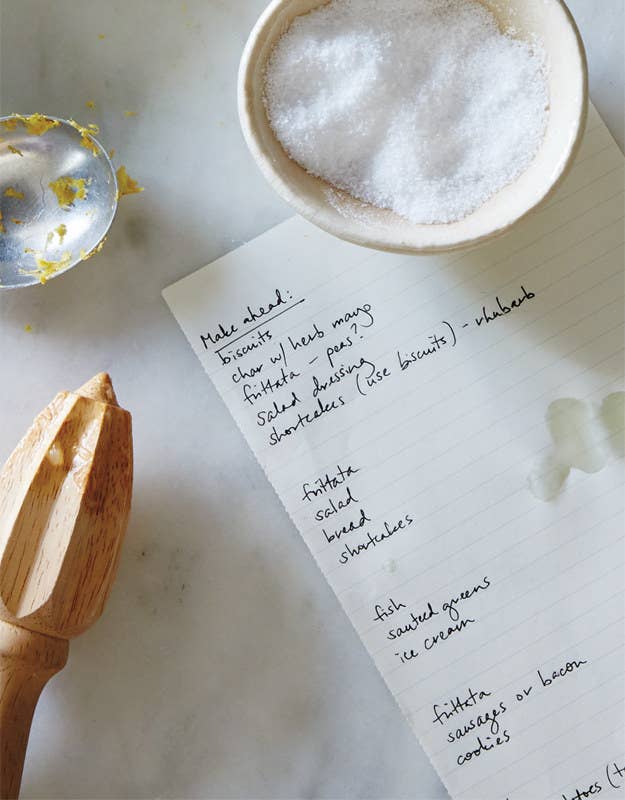 Make ahead:
biscuits
char w/ herb mayo
frittata – peas?
salad dressing
shortcakes (use biscuits) – rhubarb
frittata
salad
bread
shortcakes
fish
sauteed greens
ice cream
frittata
sausages or bacon
cookies